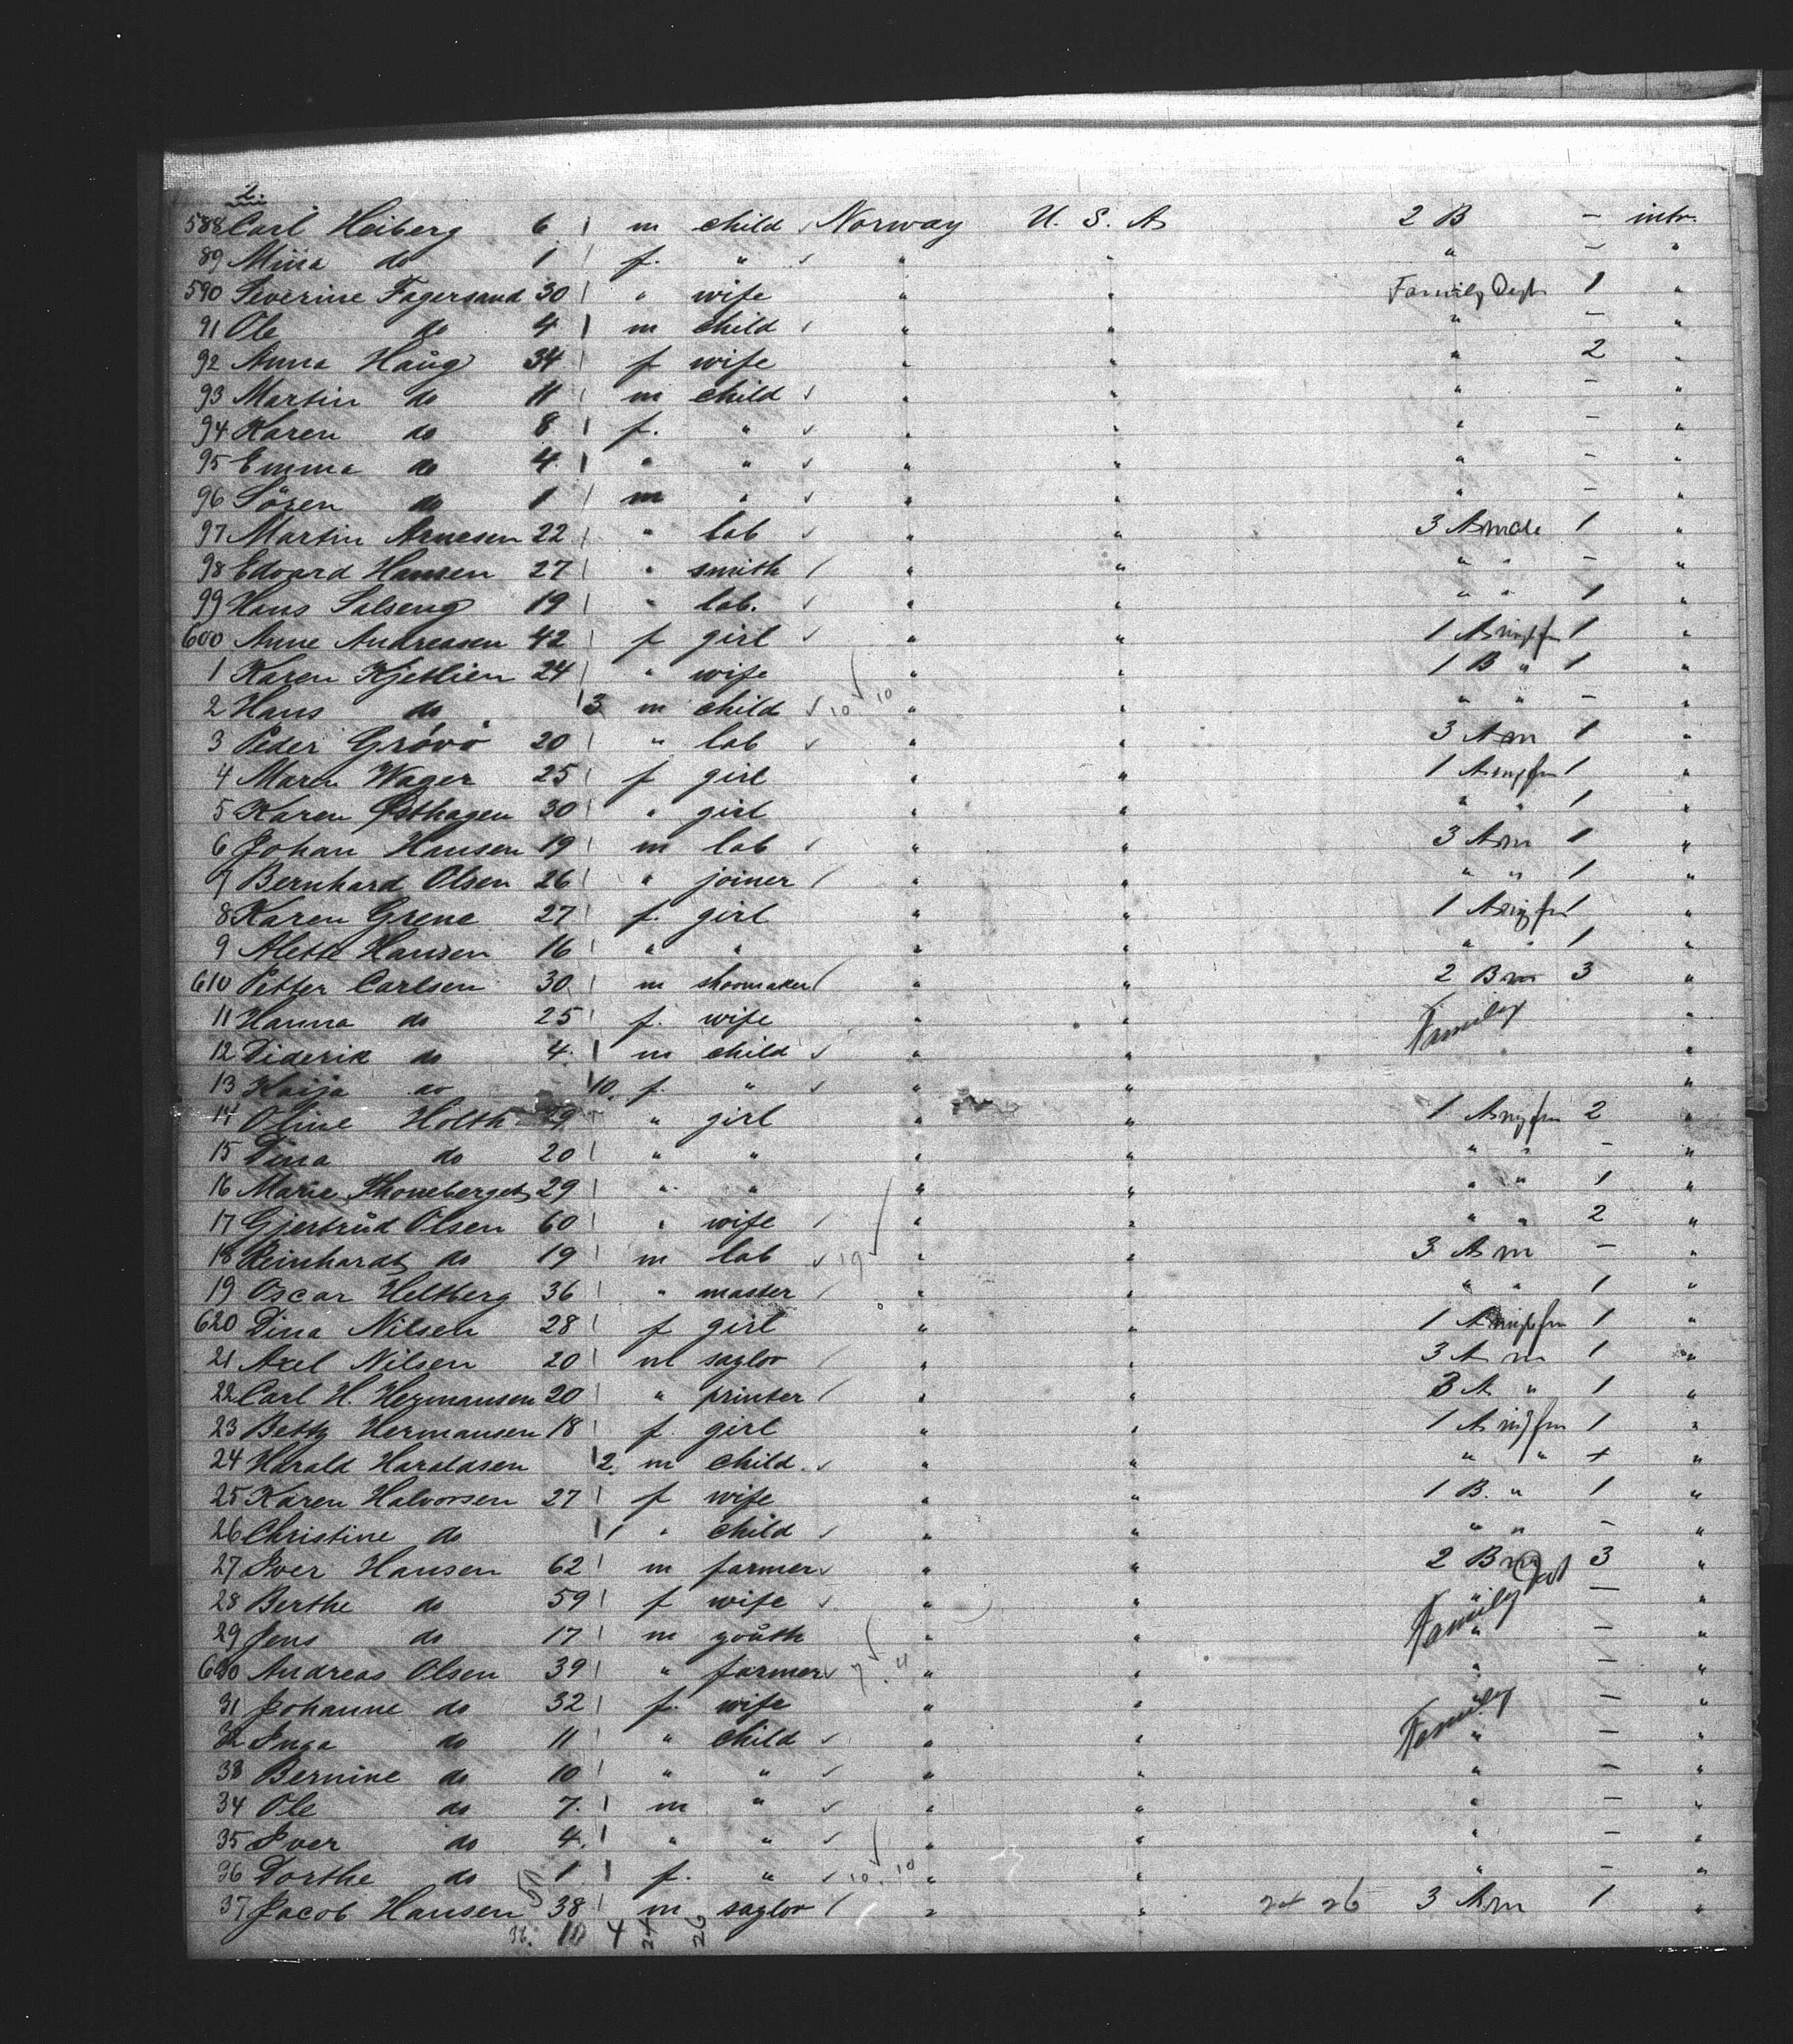 2.
588 Carl Heiberg 6 m child Norway U. S. A 2 B – intr.
89 Mina do 1 f. " " " " – "
590 Severine Fagersand 30 " wife " " Family Dept 1 "
91 Ole do 4 m child " " " – "
92 Anna Haug 34 f wife " " " 2 "
93 Martin do 11 m child " " " – "
94 Karen do 8 f. " " " " – "
95 Emma do 4 " " " " " – "
96 Sören do 1 m " " " " – "
97 Martin Arnesen 22 " lab " " 3 A 1 "
98 Edvard Hansen 27 " smith " " " " – "
99 Hans Salseng 19 " lab. " " " " 1 "
600 Anne Andreasen 42 f girl " " 1 A 1 "
1 Karen Kjetlien 24 " wife " " 1 B " 1 "
2 Hans do 3 m child 10 10 " " " " – "
3 Peder Grövö 20 " lab " " 3 A m 1 "
4 Maren Wager 25 f girl " " 1 A 1 "
5 Karen Østhagen 30 " girl " " " " 1 "
6 Johan Hansen 19 m lab " " 3 A m 1 "
7 Bernhard Olsen 26 " joiner " " " " 1 "
8 Karen Grene 27 f. girl " " 1 A 1 "
9 Alette Hansen 16 " " " " " " 1 "
610 Petter Carlsen 30 m shoomaker " " 2 B m 3 "
11 Hanna do 25 f. wife " " Family "
12 Diderik do 4. m child " " "
13 Kaija do 10. f. " " " "
14 Oline Holth 29 " girl " " 1 A 2 "
15 Dina do 20 " " " " " " – "
16 Marie Thoneberget 29 " " " " " " 1 "
17 Gjertrud Olsen 60 " wife " " " " 2 "
18 Reinhardt do 19 m lab 19 " " 3 A m – "
19 Oscar Heltberg 36 " master " " " " 1 "
620 Dina Nilsen 28 f girl " " 1 A 1 "
21 Axel Nilsen 20 m saylor " " 3 A m 1 "
22 Carl H. Hermansen 20 " printer " " 3 A " 1 "
23 Betty Hermansen 18 f. girl " " 1 A 1 "
24 Harald Haraldsen 2. m child " " " " + "
25 Karen Halvorsen 27 f wife " " 1 B. " 1 "
26 Christine do 1 " child " " " " – "
27 Iver Hansen 62 m farmer " " 2 B m 3 "
28 Berthe do 59 f wife " " Family Dept – "
29 Jens do 17 m youth " " " – "
630 Andreas Olsen 39 " farmer 7. 4 " " " – "
31 Johanne do 32 f. wife " " Family – "
32 Inga do 11 " child " " " – "
33 Bernine do 10 " " " " " – "
34 Ole do 7. m " " " " – "
35 Iver do 4. " " " " " – "
36 Dorthe do 1 f. " 10. 10 " " " – "
37 Jacob Hansen 38 m saylor " " 24 26 3 A m 1 "
36. 10 4 24 26